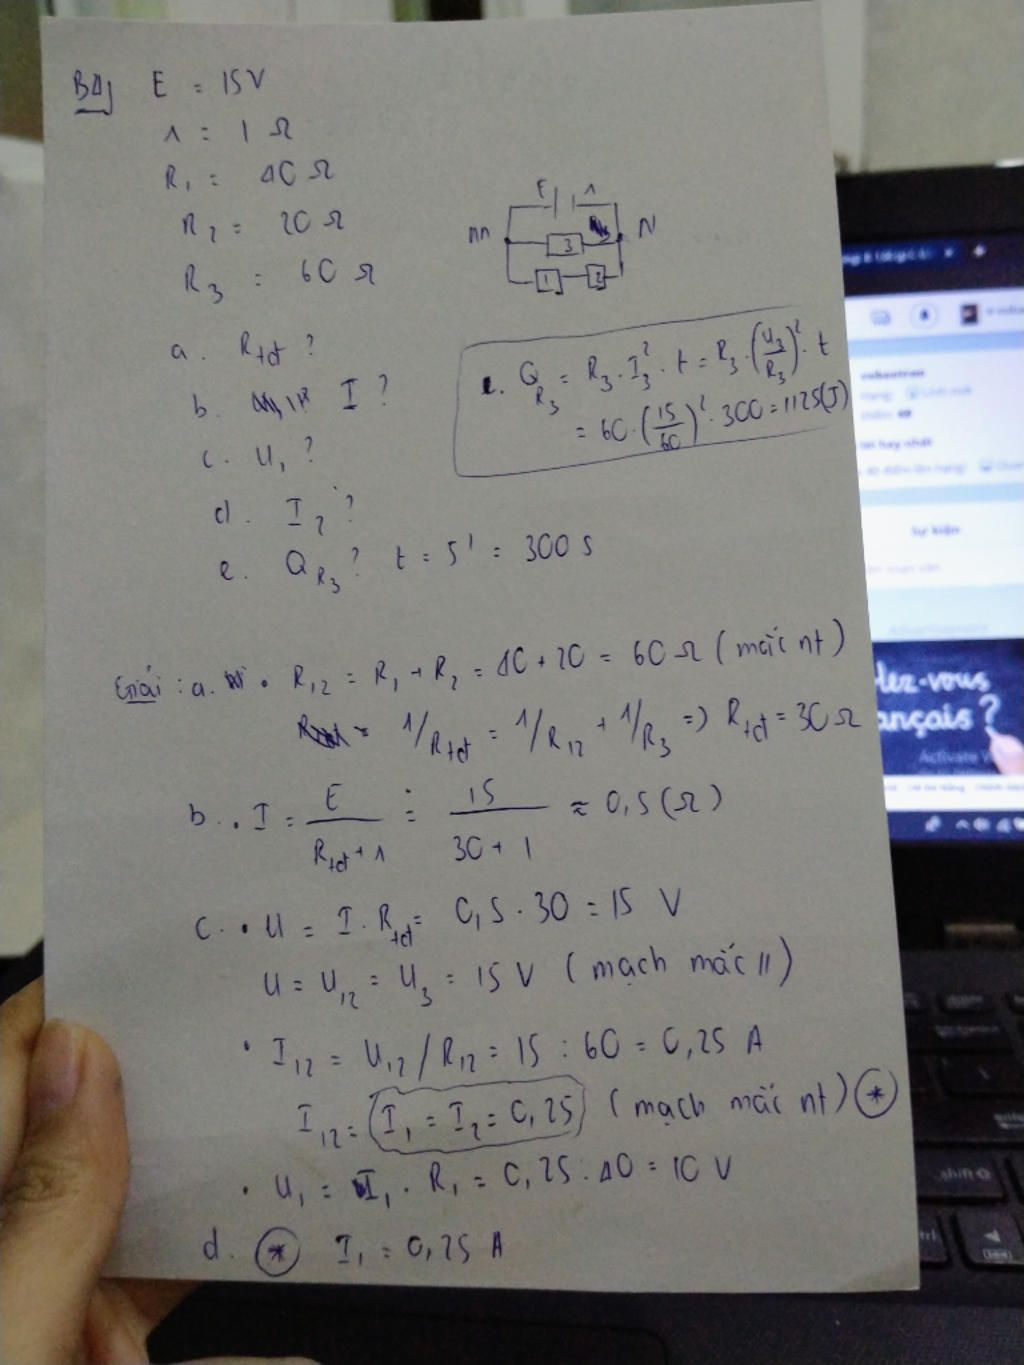 BD4 E = 15V
r = 1 Ω
R1 = 40 Ω
R2 = 20 Ω
R3 = 60 Ω
E r
m 3 N
1 2
a. Rtđ ?
b. I ?
c. U1 ?
d. I2 ?
e. QR3 ? t = 5' = 300 s
e. QR3 = R3 . I3² . t = R3 . (U3/R3)² . t
= 60 . (15/60)² . 300 = 1125(J)
Giải : a. • R12 = R1 + R2 = 40 + 20 = 60 Ω ( mắc nt )
1/Rtđ = 1/R12 + 1/R3 => Rtđ = 30 Ω
b. • I = E/(Rtđ + r) = 15/(30 + 1) ≈ 0,5 (Ω)
c. • U = I . Rtđ = 0,5 . 30 = 15 V
U = U12 = U3 = 15 V ( mạch mắc // )
• I12 = U12 / R12 = 15 : 60 = 0,25 A
I12 = I1 = I2 = 0,25 ( mạch mắc nt ) *
• U1 = I1 . R1 = 0,25 . 40 = 10 V
d. * I1 = 0,25 A
lez-vous
ançais ?
Activate W
Sự kiện
shift